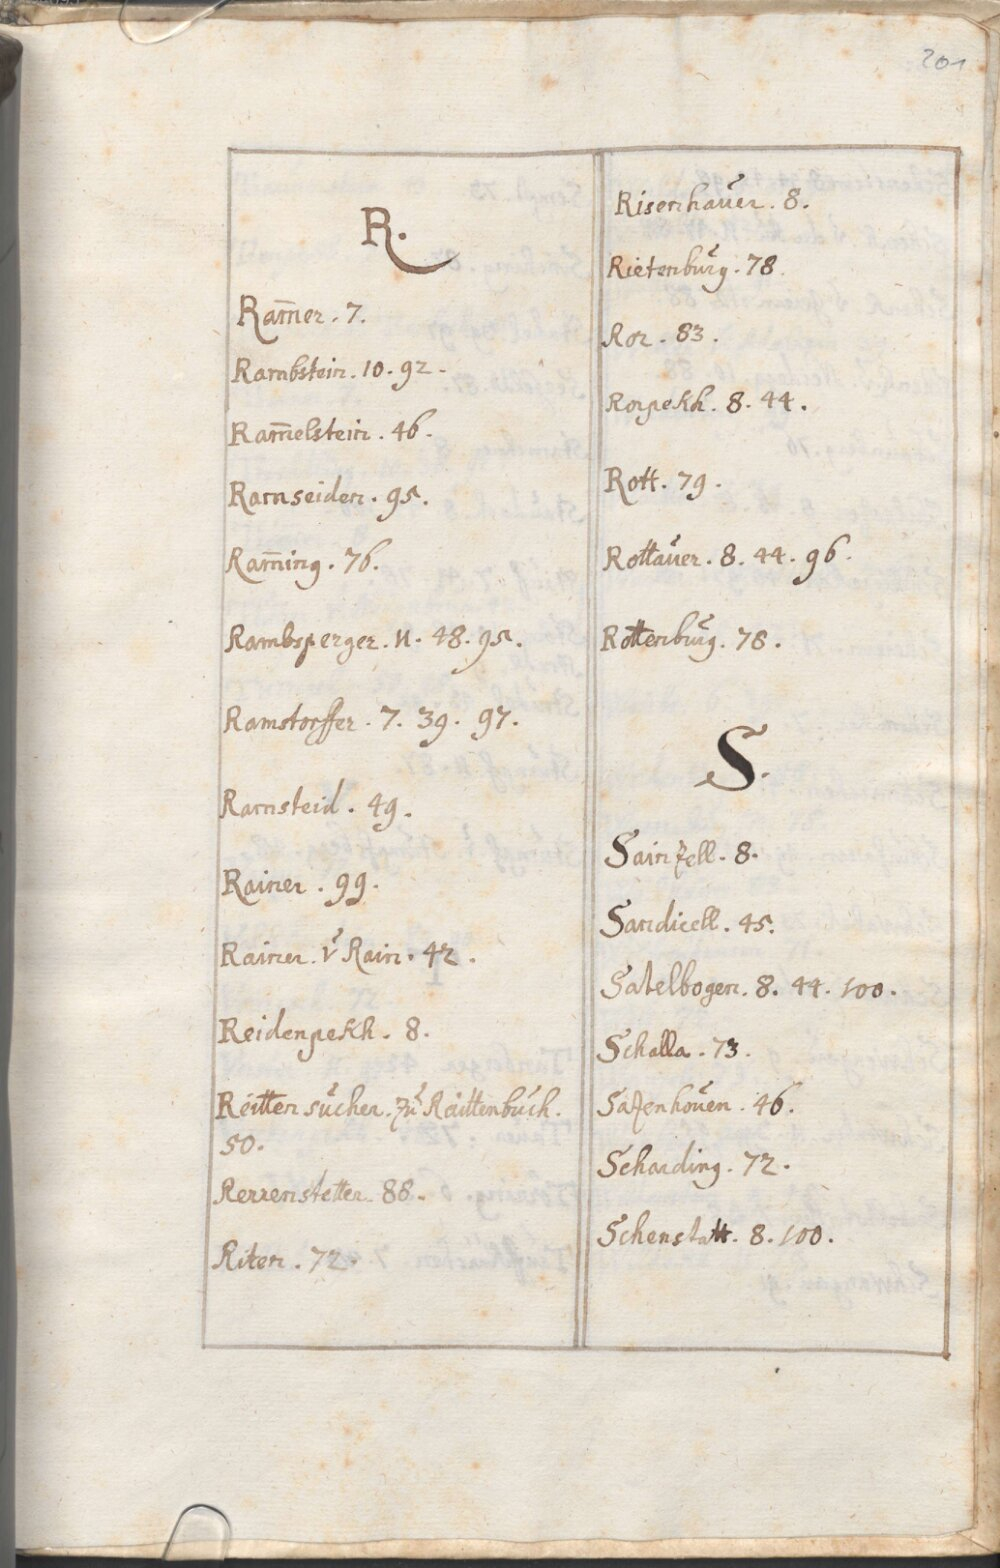 201
R.
Ram̄er. 7.
Rambstein. 10. 92.
Ram̄elstein. 46.
Ramseiden. 95.
Ram̄ing. 76.
Rambsperger. 11. 48. 95.
Ramstorffer. 7. 39. 97.
Ramsteid. 49.
Rainer. 99.
Rainer. v̆ Rain. 42.
Reidenpekh. 8.
Reitter sŭcher. zŭ Raittenbŭch.
50.
Rerrenstetter. 88.
Riter. 72.
Risenhaŭer. 8.
Rietenbŭrg. 78.
Ror. 83.
Rorpekh. 8. 44.
Rott. 79.
Rottaŭer. 8. 44. 96.
Rottenbŭrg. 78.
S.
Sainzell. 8.
Sandicell. 45.
Satelbogen. 8. 44. 100.
Schalla. 73.
Sazenhoŭen. 46.
Scharding. 72.
Schenstatt. 8. 100.